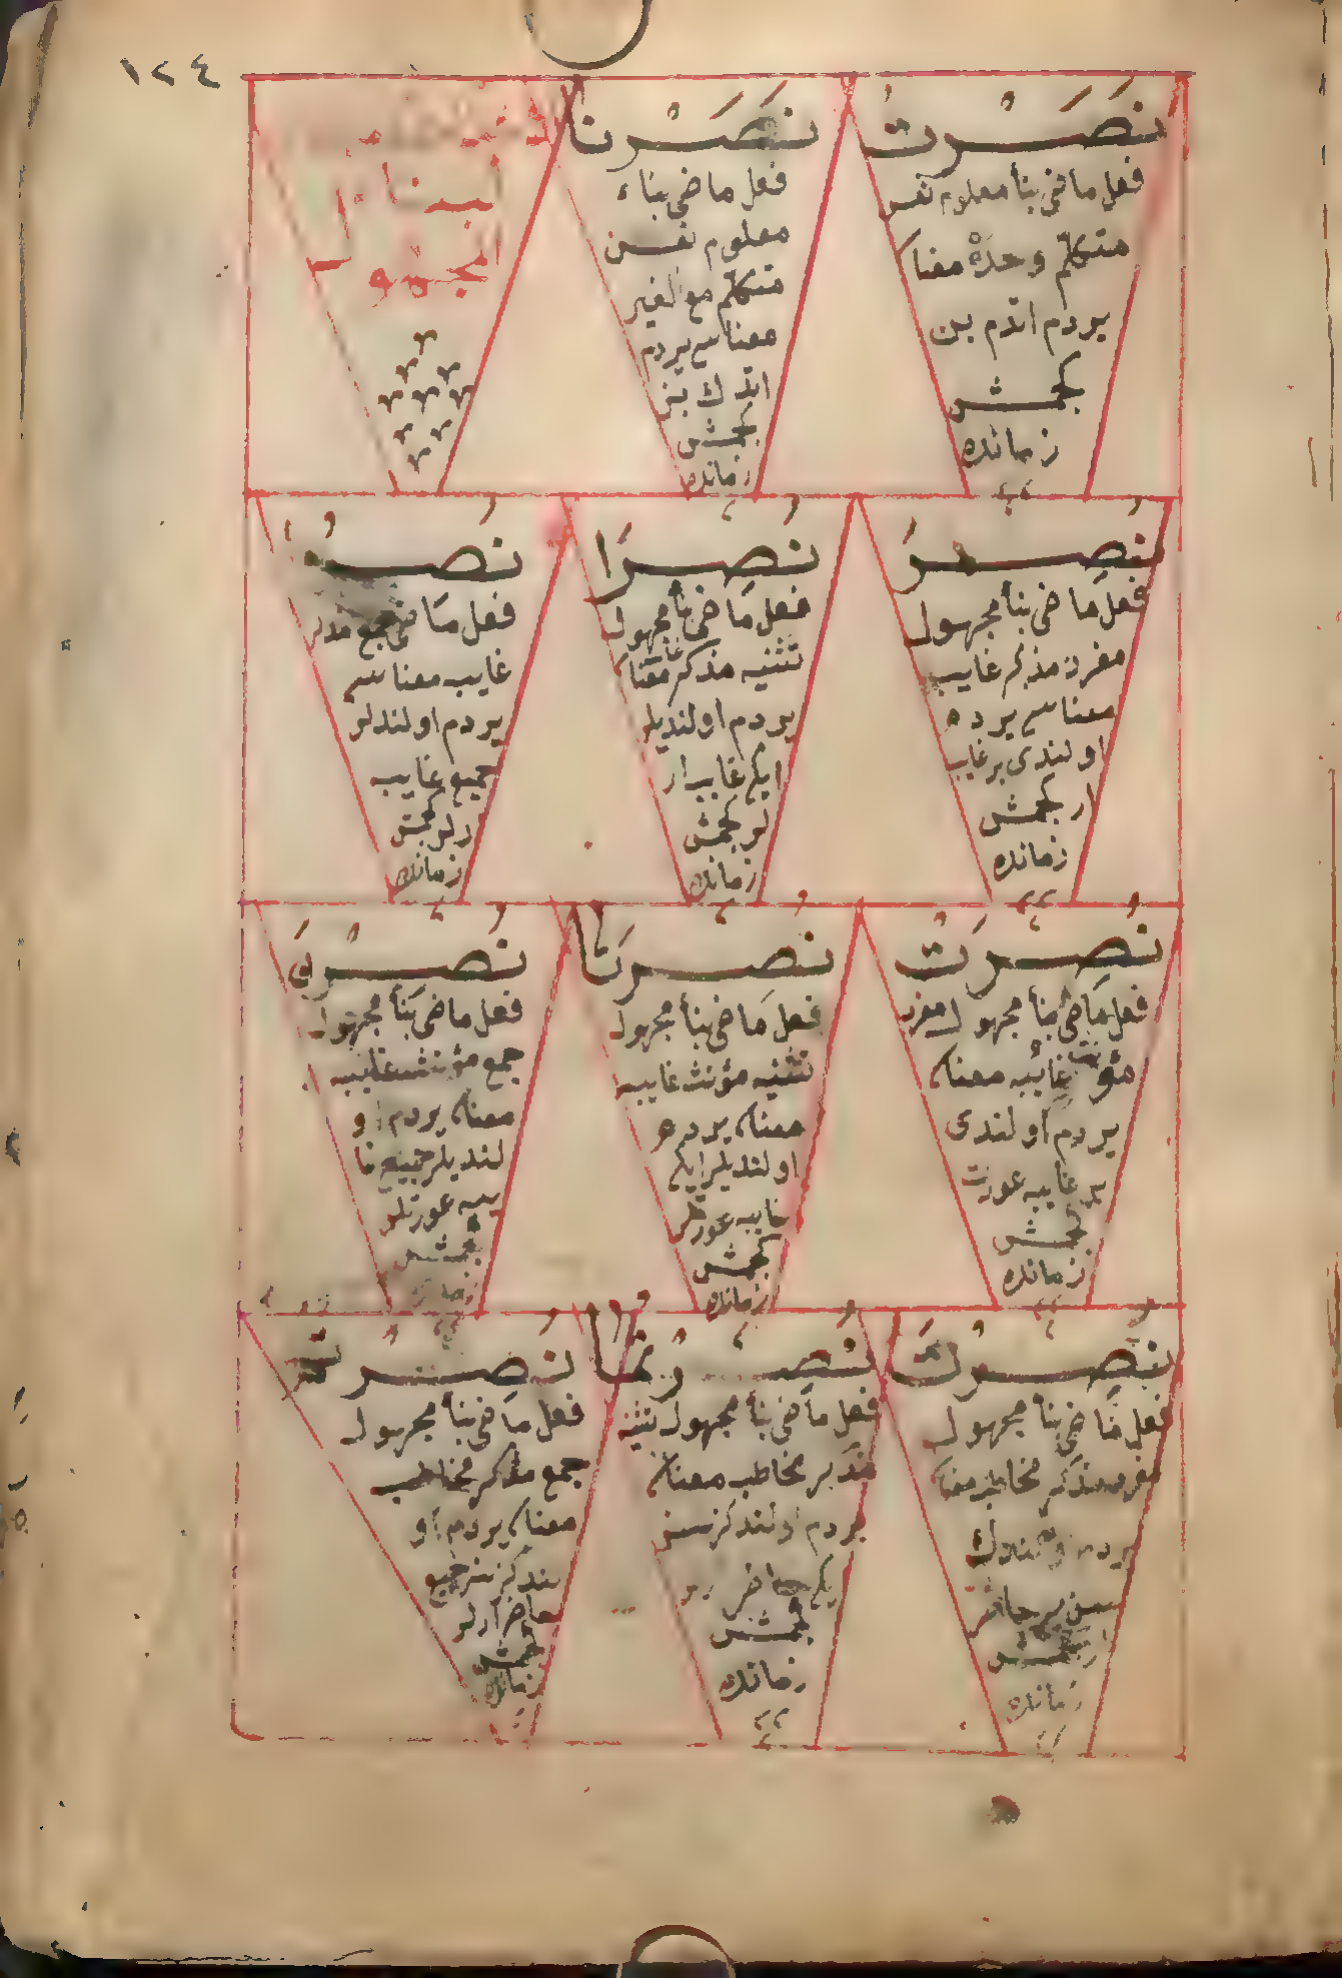 ١٢٤
نَصَرْتُ
فعل ماضى بنأ معلوم نفس
متكلم وحدَهْ معناسى
يردم اتدم بن
كچمش
زمانده
نَصَرْنَا
فعل ماضى بناء
معلوم نفس
متكلم مع الغير
معناسى يردم
اتدك بز
كچمش
زمانده
بناء
المجهول
نُصِرَ
فعل ماضى بنأ مجهول
مفرد مذكر غايب
معناسى يرده
اولندى بر غايب
ار كچمش
زمانده
نُصِرَا
فعل ماضى بنأ مجهول
تثنيه مذكر غايب معناسى
يردم اولنديلر
ايكى غايب ار
لر كچمش
زمانده
نُصِرُوا
فعل ماضى جمع مذكر
غايب معناسى
يردم اولندلر
جميع غايب
ارلر كچمش
زمانده
نُصِرَتْ
فعل ماضى بنأ مجهول مفرد
مؤنث غائبه معناسى
يردم اولندى
بر غايبه عورت
كچمش
زمانده
نُصِرَتَا
فعل ماضى بنأ مجهول
تثنيه مؤنث غايبه
معناسى يردم
اولنديلر ايكى
غايبه عورتلر
كچمش
زمانده
نُصِرْنَ
فعل ماضى بنأ مجهول
جمع مؤنث غايبه
معناسى يردم او
لنديلر جميع غا
يبه عورتلر
كچمش
زمانده
نُصِرْتَ
فعل ماضى بنأ مجهول
مفرد مذكر مخاطب معناسى
يردم اولندك
سن بر حاضر
ار كچمش
زمانده
نُصِرْتُمَا
فعل ماضى بنأ مجهول تثنيه
مذكر مخاطب معناسى
يردم اولندكز سز
ايكى حاضر
كچمش
زمانده
نُصِرْتُمْ
فعل ماضى بنأ مجهول
جمع مذكر مخاطب
معناسى يردم او
لندكز سز جميع
حاضر ارلر
كچمش
زمانده